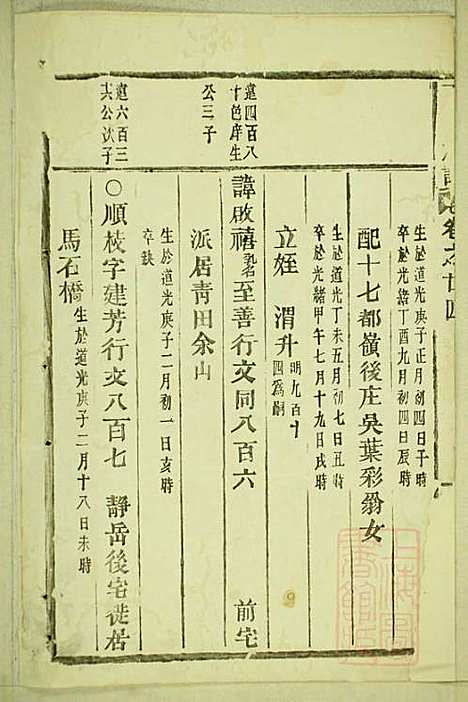 卷之廿四
生於道光庚子正月初四日午時
卒於光緒丁酉九月初四日辰時
配十七都嶺後庄吳葉彩翁女
生於道光丁未五月初七日丑時
卒於光緒甲午七月十九日戌時
立姪 渭升 明九百十四爲嗣
遠四百八十邑庠生公三子
諱啟禧 至善行文同八百六 前宅
派居青田余山
生於道光庚子二月初一日亥時
卒缺
遠六百三其公次子
○順枝字建芳行文八百七 靜岳後宅徙居
馬石橋 生於道光庚子二月十八日未時